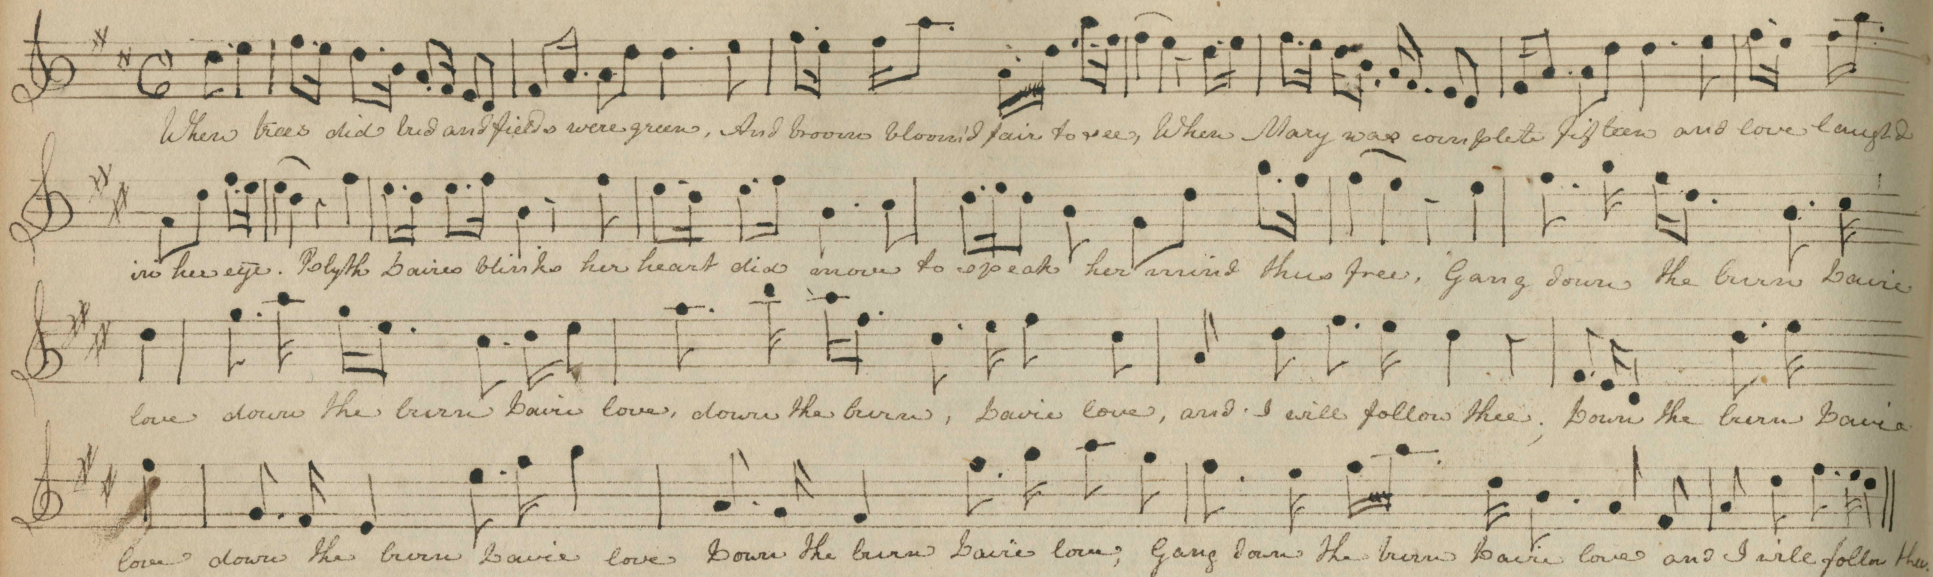 When trees did bud and fields were green, And broom bloom'd fair to see, When Mary was complete fifteen and love laugh'd
in her eye. Blyth Davies blinks her heart did move to speak her mind thus free, Gang down the burn Davie
love down the burn Davie love, down the burn, Davie love, and I will follow thee; Down the burn Davie
love down the burn Davie love Down the burn Davie love, Gang down the burn Davie love and I will follow thee.